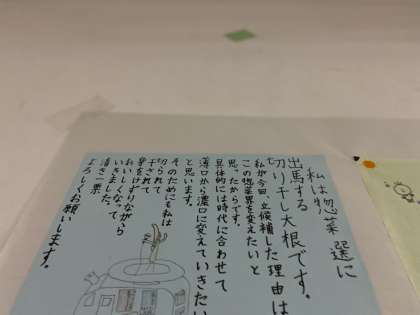 私は惣菜 選に
出馬する
切り干し大根です。
私が今回、立候補した理由は
この惣菜界を変えたいと
思ったからです。
具体的には時代に合わせて
薄口から濃口に変えていきたい
と思います。
そのためにも私は
切られて
干されて
身をけずりながら
おいしくなって
いきました。
清き一票
よろしくお願いします。